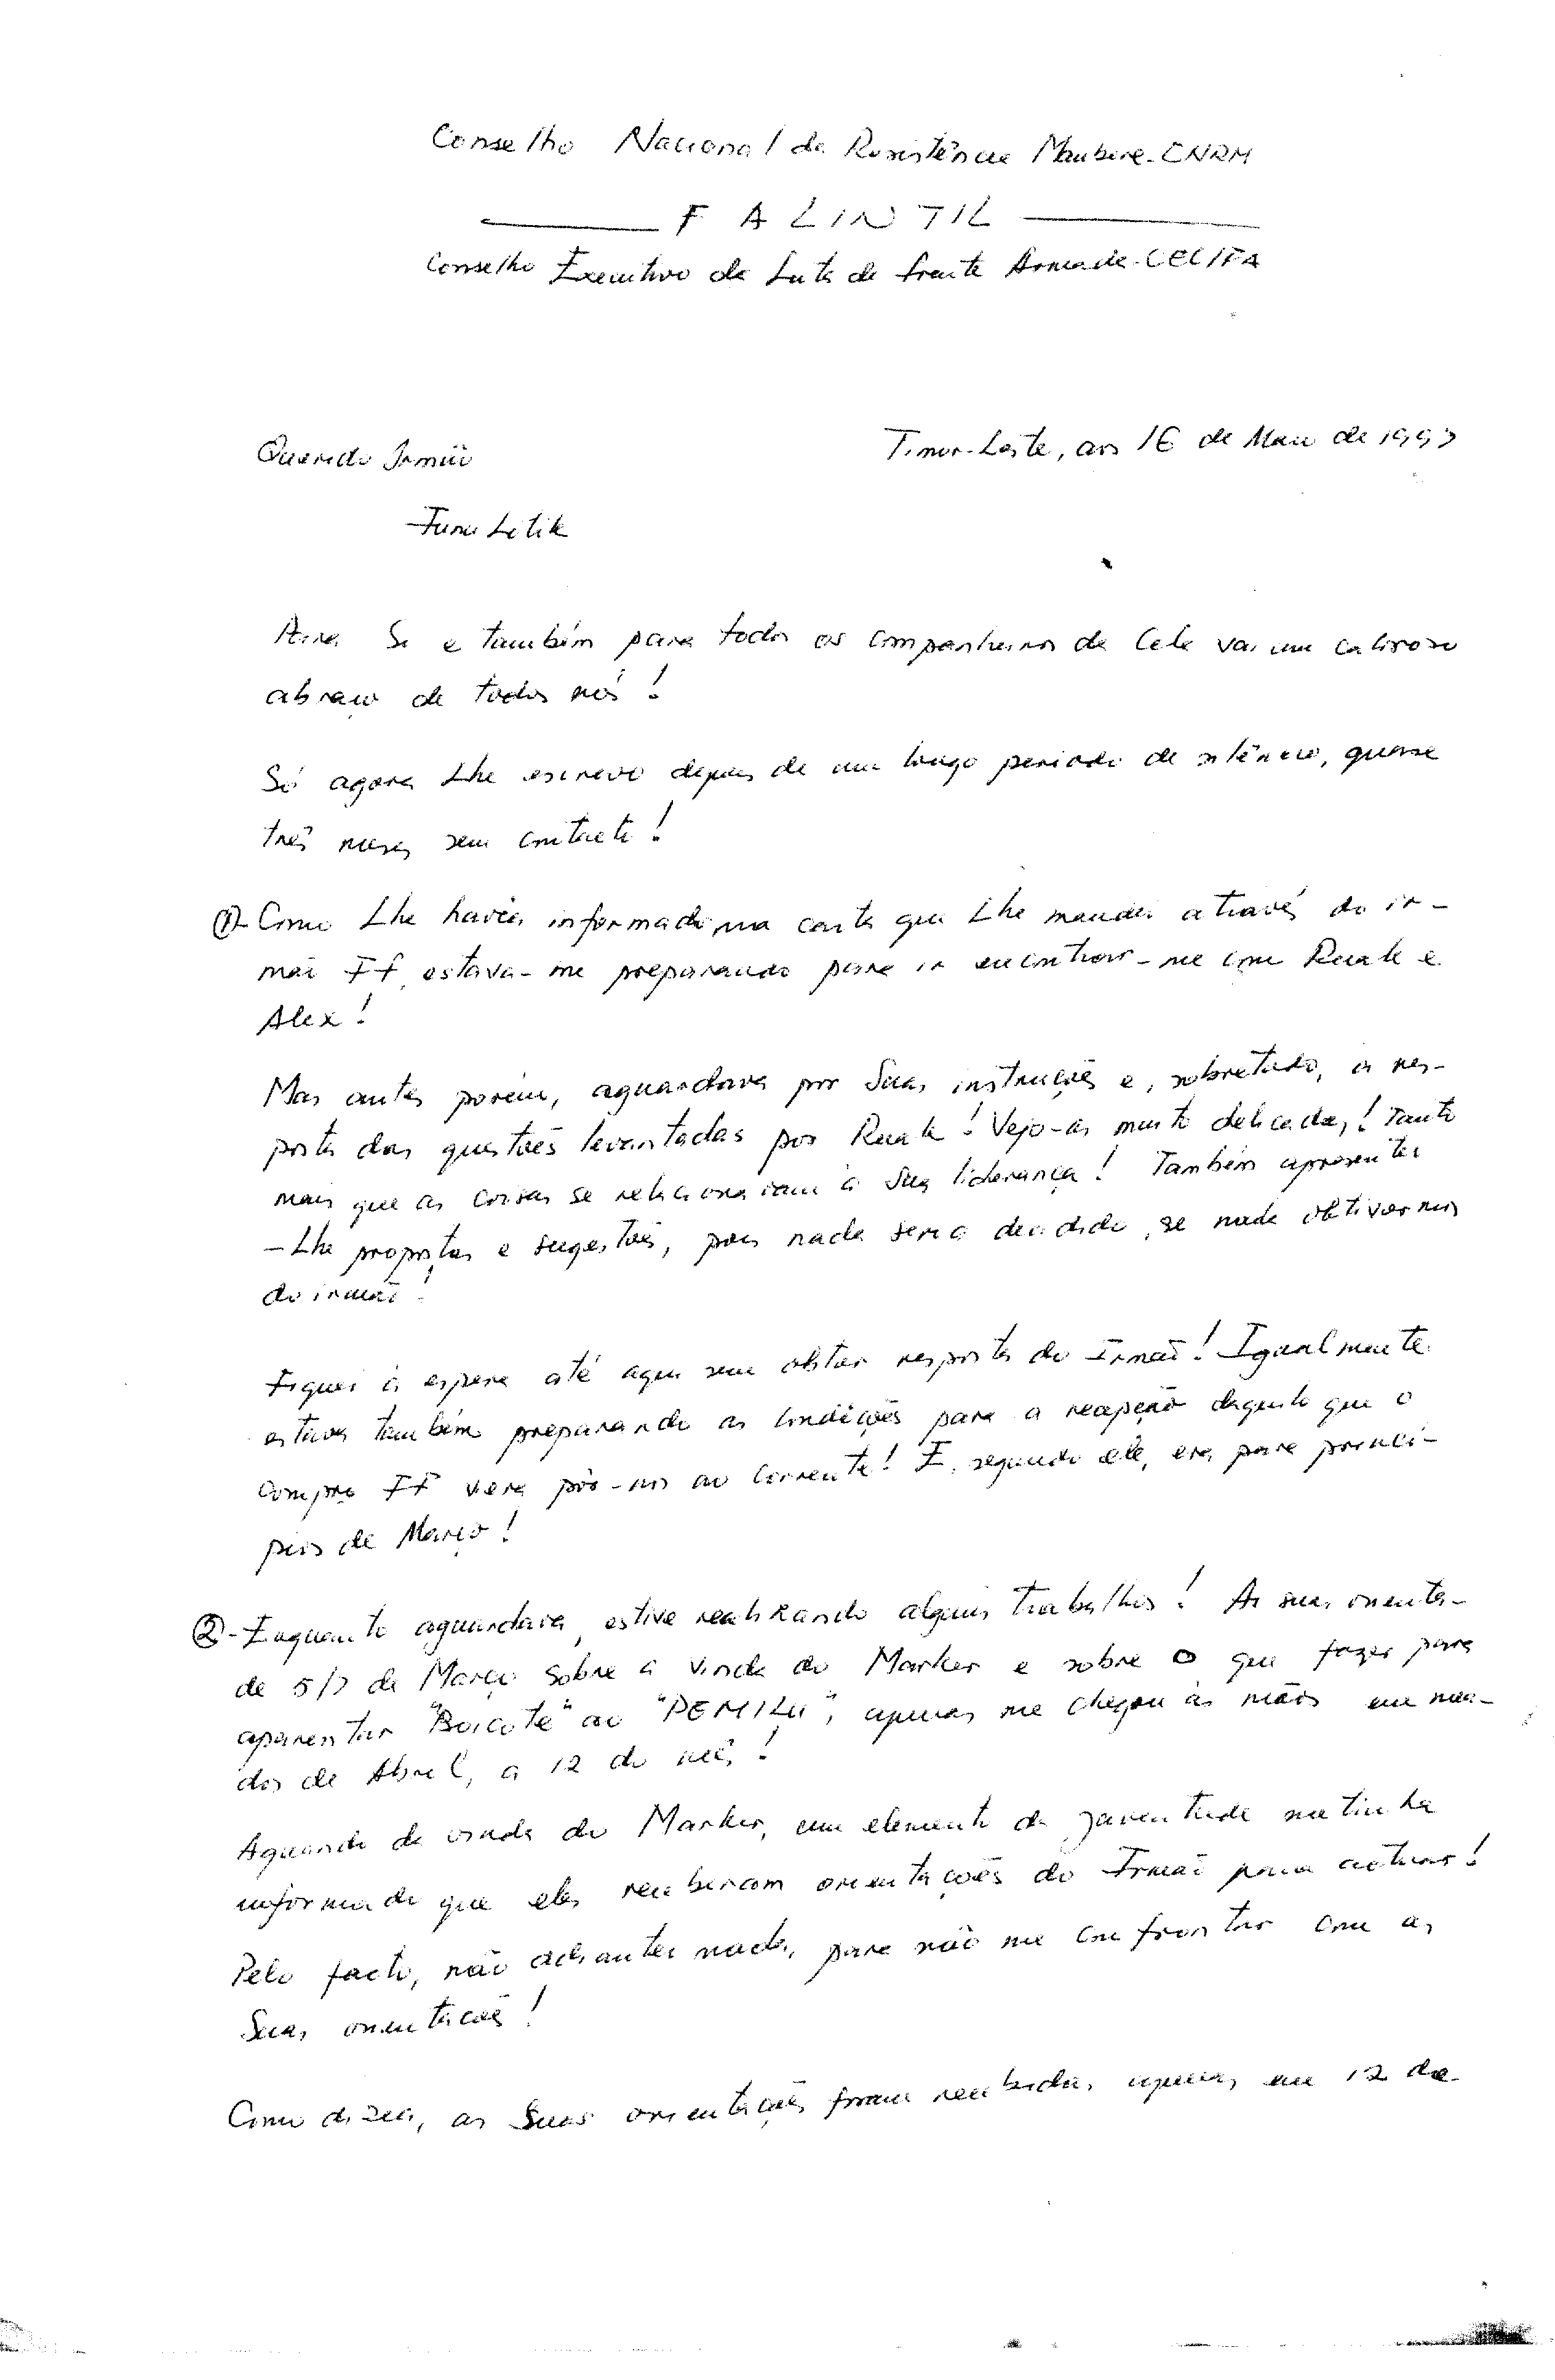 Conselho Nacional da Resistência Maubere-CNRM
FALINTIL
Conselho Executivo da Luta de frente Armada-CEL/FA
Timor-Leste, aos 16 de Maio de 1997
Querido Irmão
Funu Litik
Para Si e também para todos os companheiros da Cela vai um caloroso
abraço de todos nós!
Só agora Lhe escrevo depois de um longo período de silêncio, quase
três meses sem contacto!
①- Como Lhe havia informado, na carta que Lhe mandei através do ir-
mão FF, estava-me preparando para ir encontrar-me com Ruak e
Alex!
Mas antes porém, aguardava por Suas instruções e, sobretudo, a res-
posta das questões levantadas por Ruak! Vejo-as muito delicadas! Tanto
mais que as coisas se relacionavam à Sua liderança! Também apresentei
-Lhe propostas e sugestões, pois nada seria decidido, se nada obtivermos
do irmão!
Fiquei à espera até aqui sem obter resposta do Irmão! Igualmente
estava também preparando as condições para a recepção daquilo que o
compº FF viera pôr-nos ao corrente! E, segundo ele, era para princí-
pios de Março!
②- Enquanto aguardava, estive realizando alguns trabalhos! As suas orienta-
de 5/7 de Março sobre a vinda do Marker e sobre o que fazer para
aparentar "Boicote" ao "PEMILU", apenas me chegou às mãos em mea-
dos de Abril, a 12 do mês!
Aquando da vinda do Marker, um elemento da juventude me tinha
informado que eles receberam orientações do Irmão para actuar!
Pelo facto, não adiantei nada, para não me confrontar com as
Suas orientações!
Como dizia, as Suas orientações foram recebidas apenas em 12 de